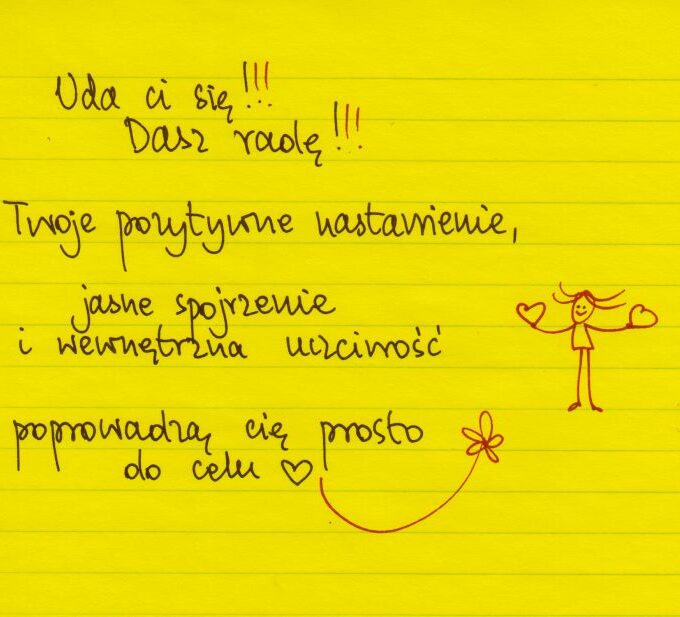 Uda ci się!!!
Dasz radę!!!
Twoje pozytywne nastawienie,
jasne spojrzenie
i wewnętrzna uczciwość
poprowadzą cię prosto
do celu ♡